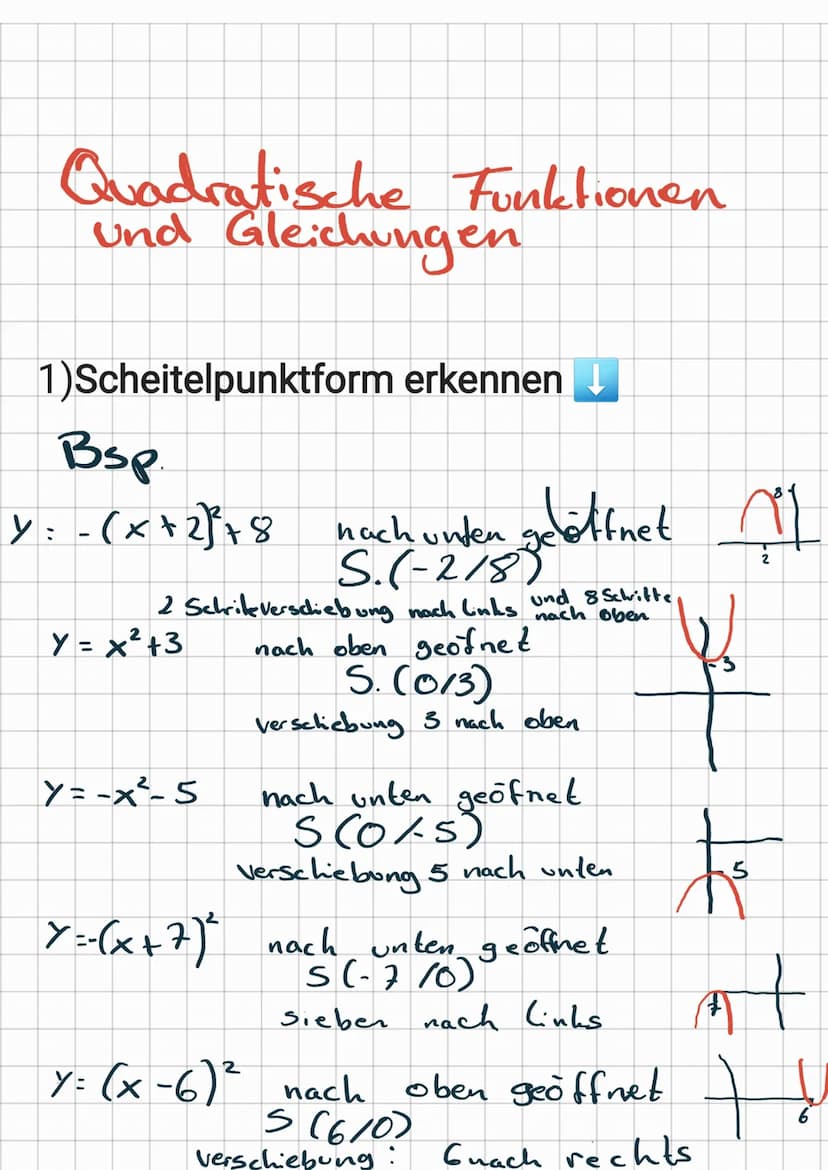 Quadratische Funktionen
und Gleichungen
1)Scheitelpunktform erkennen ⬇️
Bsp.
y: -(x+2)²+8 nach unten geöffnet
S.(-2/8)
2 Schritkverschiebung nach links und 8 Schritte nach oben
8
2
y = x²+3 nach oben geöfnet
S. (0/3)
verschiebung 3 nach oben
3
y = -x²-5 nach unten geöfnet
S (0/-5)
Verschiebung 5 nach unten
5
y=-(x+7)² nach unten geöffnet
S(-7/0)
sieben nach links
7
y= (x-6)² nach oben geöffnet
S (6/0)
verschiebung: 6 nach rechts
6